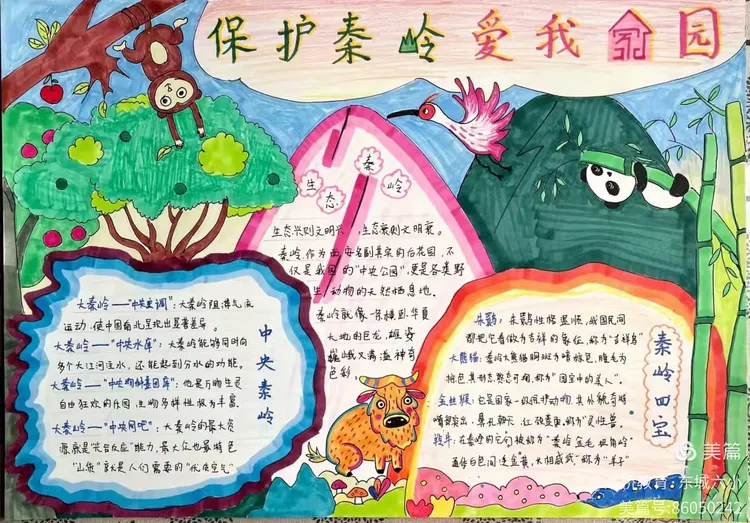 保护秦岭爱我家园
生态秦岭
生态兴则文明兴，生态衰则文明衰。
秦岭，作为西安名副其实的后花园，不
仅是我国的“中央公园”，更是各类野
生动物的天然栖息地。
秦岭就像一条横卧华夏
大地的巨龙，雄姿
巍峨又满溢神奇
色彩
中央秦岭
大秦岭——“中央空调”：大秦岭阻滞气流
运动，使中国南北呈现出显著差异。
大秦岭——“中央水库”：大秦岭能够同时向
多个大江河注水，还能起到分水的功能。
大秦岭——“中央物种基因库”：也是万物生灵
自由狂欢的乐园，生物多样性极为丰富。
大秦岭——“中央网吧”：大秦岭的最大资
源就是“光合反应”能力，最大众也最特色
“山货”就是人们需要的“优良空气”
秦岭四宝
朱鹮：朱鹮性格温顺，我国民间
都把它看做为吉祥的象征，称为“吉祥鸟”
大熊猫：秦岭大熊猫胸斑为暗棕色，腹毛为
棕色，其形态憨态可掬，称为“国宝中的美人”。
金丝猴：它是国家一级保护动物，其外貌奇特
嘴唇突出，鼻孔朝天，称为“灵性兽”。
羚牛：在秦岭的它们被称为“秦岭金毛扭角羚”
称为“羊子”
美篇
东城六小
美篇号:86050242